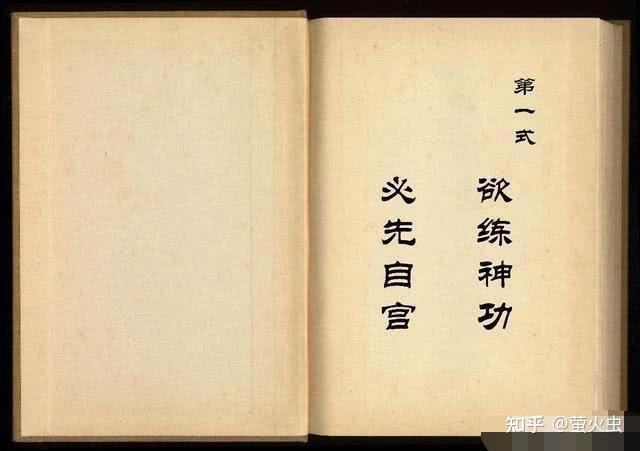 第一式
欲练神功
必先自宫
知乎 @萤火虫